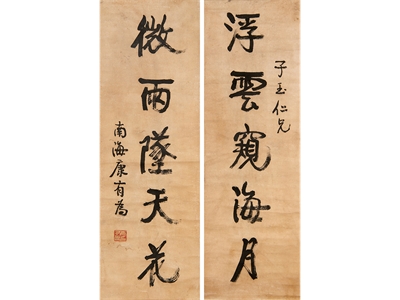 浮雲窺海月
子玉仁兄
微雨墜天花
南海康有為